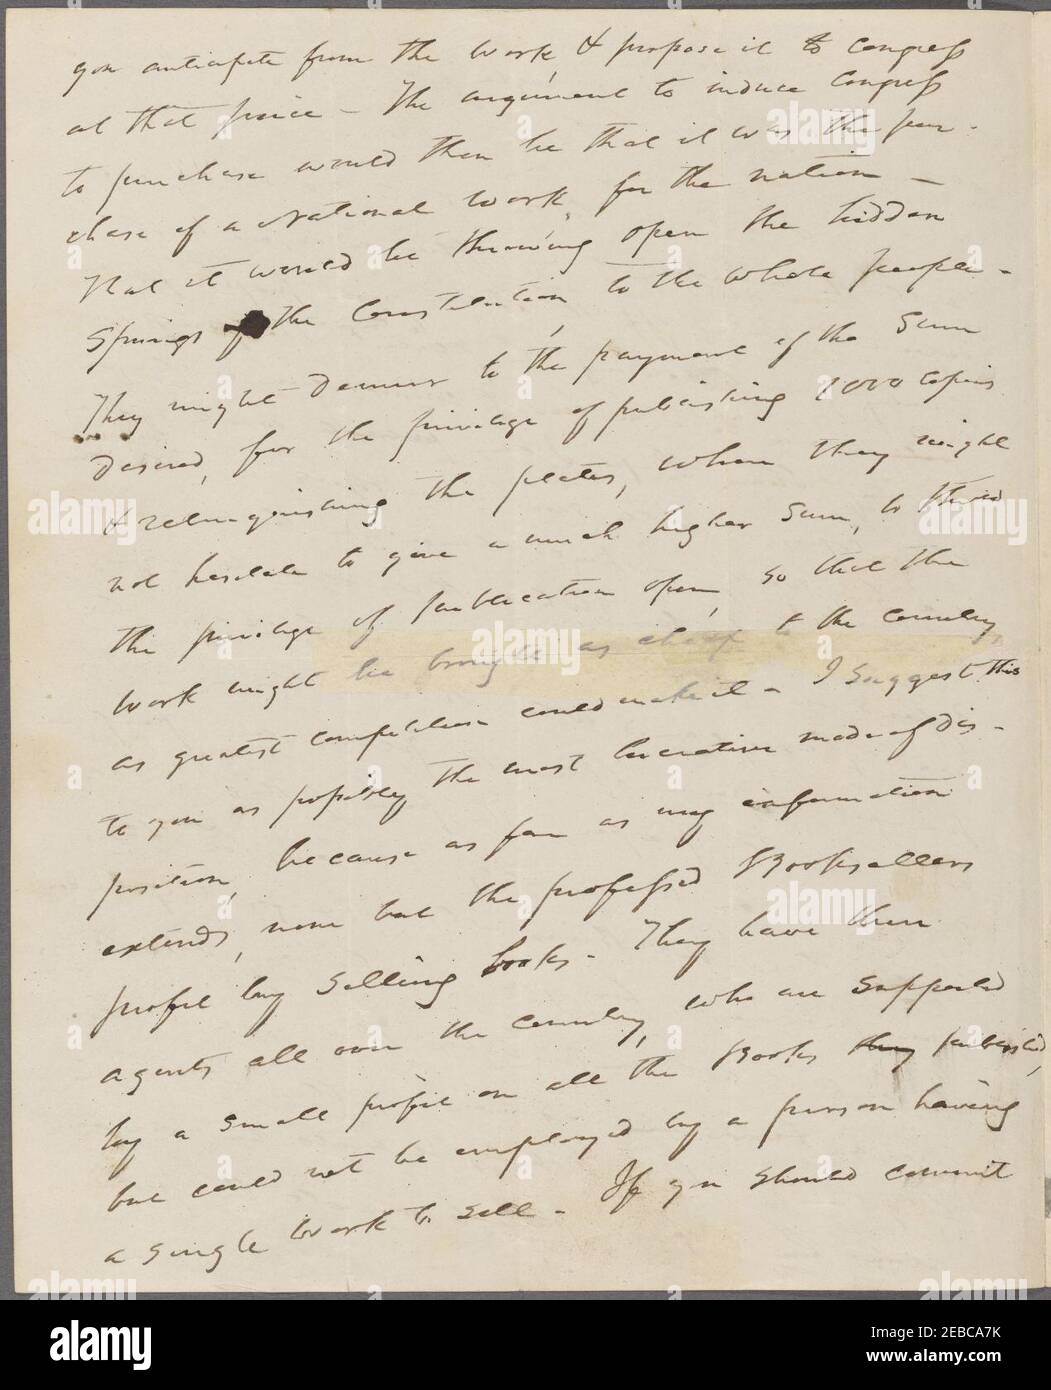 you anticipate from the work, & propose it to Congress
at that price – The argument to induce Congress
to purchase would then be that it was the pur-
chase of a National work, for the nation –
that it would be throwing open the hidden
springs of the Constitution, to the whole people –
They might demur to the payment of the sum
desired, for the privilege of publishing 1000 copies
& relinquishing the plates, when they might
not hesitate to give a much higher sum, to
the privilege of publication open, so that the
work might be brought as cheap to the country,
as greatest competition could make it – I suggest this
to you as possibly the most lucrative mode of dis-
position, because as far as my information
extends, none but the professed Booksellers
profit by selling books – They have their
agents all over the country, who are supported
by a small profit on all the Books they published,
but could not be employed by a person having
a single work to sell – If you should commit
alamy
alamy
alamy
alamy
alamy
alamy
alamy
alamy
a
a
alamy
Image ID: 2EBCA7K
www.alamy.com